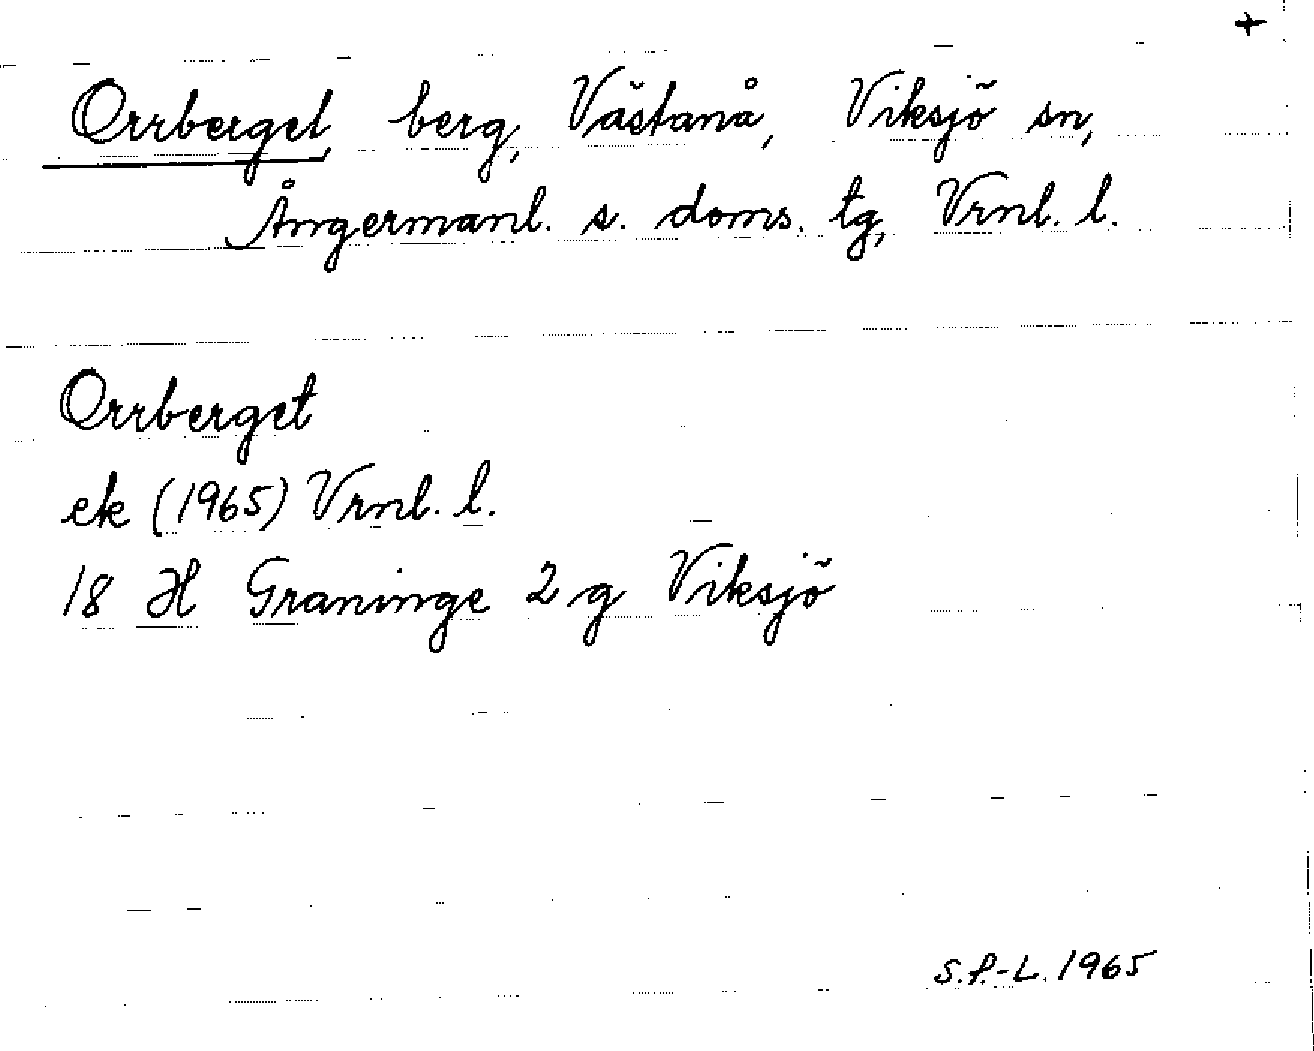 +
Orrberget, berg, Västanå, Viksjö sn,
Ångermanl. s. doms. tg, Vrnl. l.
Orrberget
ek (1965) Vrnl. l.
18 H Graninge 2 g Viksjö
S.P.-L. 1965